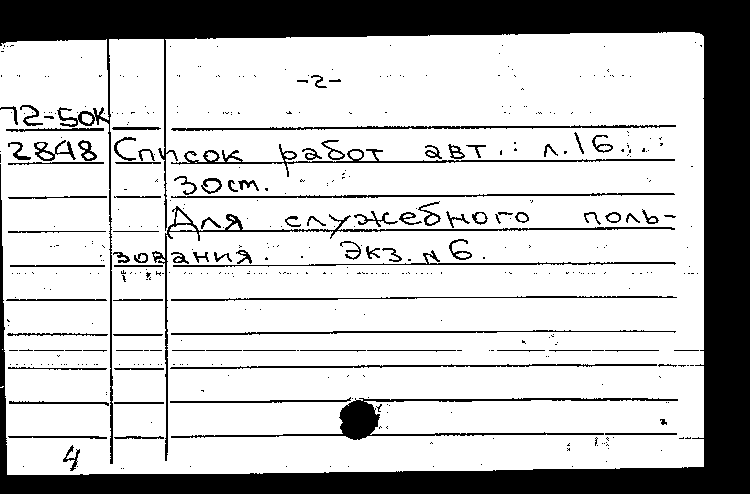 -2-
72-50К
2848 Список работ авт.: л.16.
30 ст.
Для служебного поль-
зования. Экз. N 6.
4